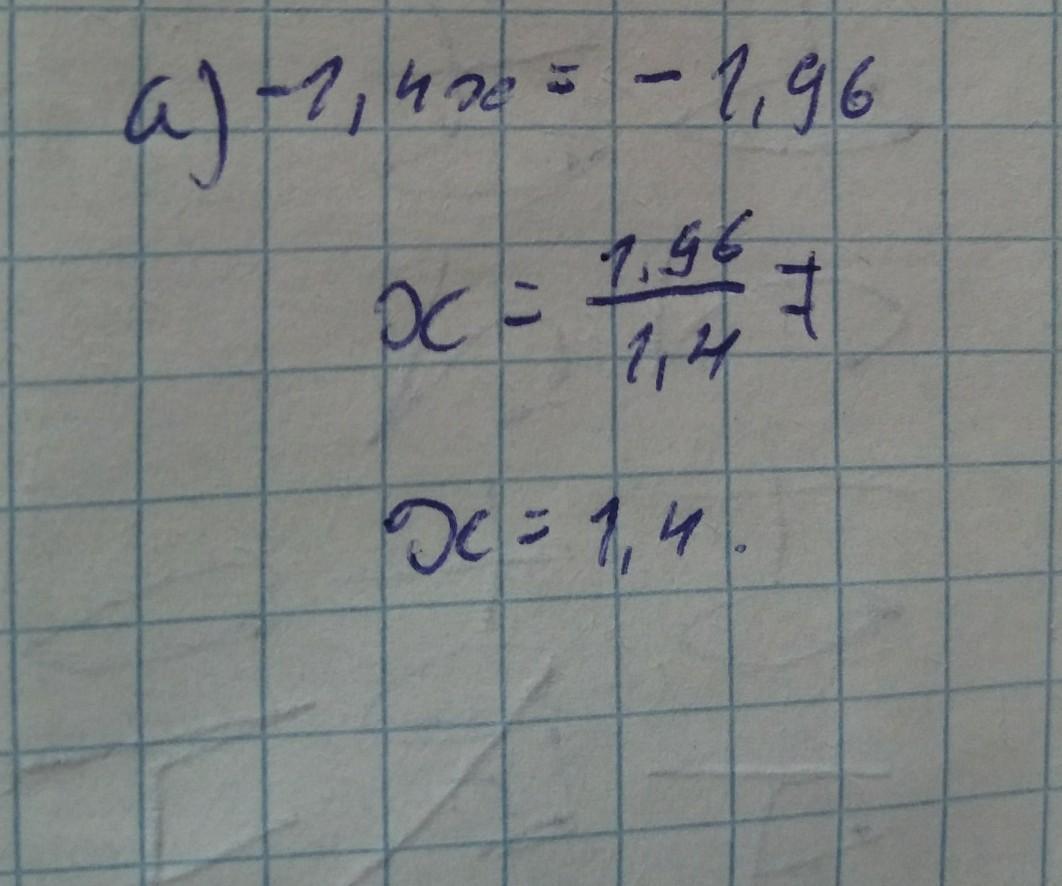 а) -1,4x = - 1,96
x = 1,96/1,4 =
x = 1,4.